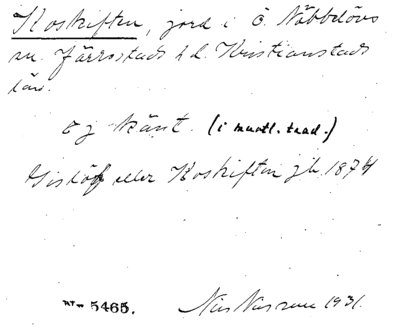 Koskiften, jord i Ö. Nöbbelövs
sn. Järrestads hd. Kristianstads
län.
Ej känt. (i muntl. trad.)
eller Koskiften gh. 1874
5465. Nils Nasson 1931.